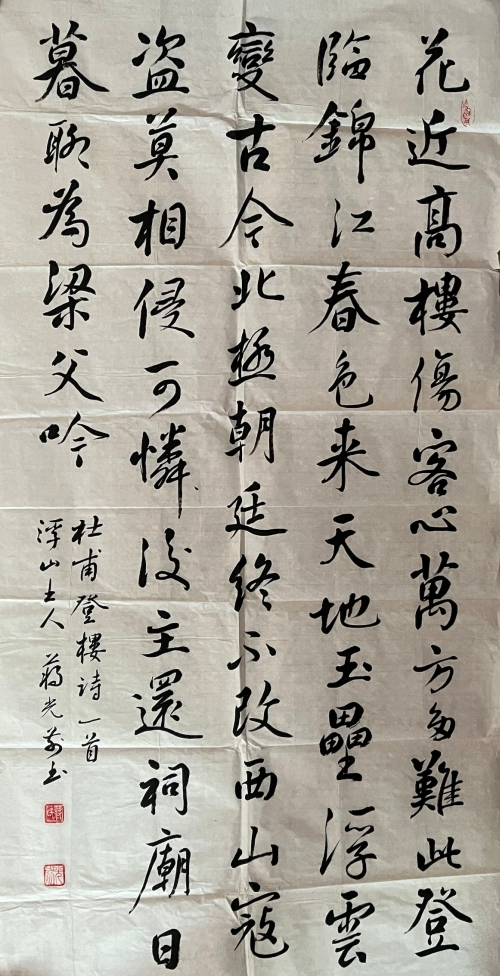 花近高樓傷客心萬方多難此登
臨錦江春色来天地玉壘浮雲
變古今北極朝廷終不改西山寇
盗莫相侵可憐後主還祠廟日
暮聊為梁父吟
杜甫登樓詩一首
浮山士人 蔣光书